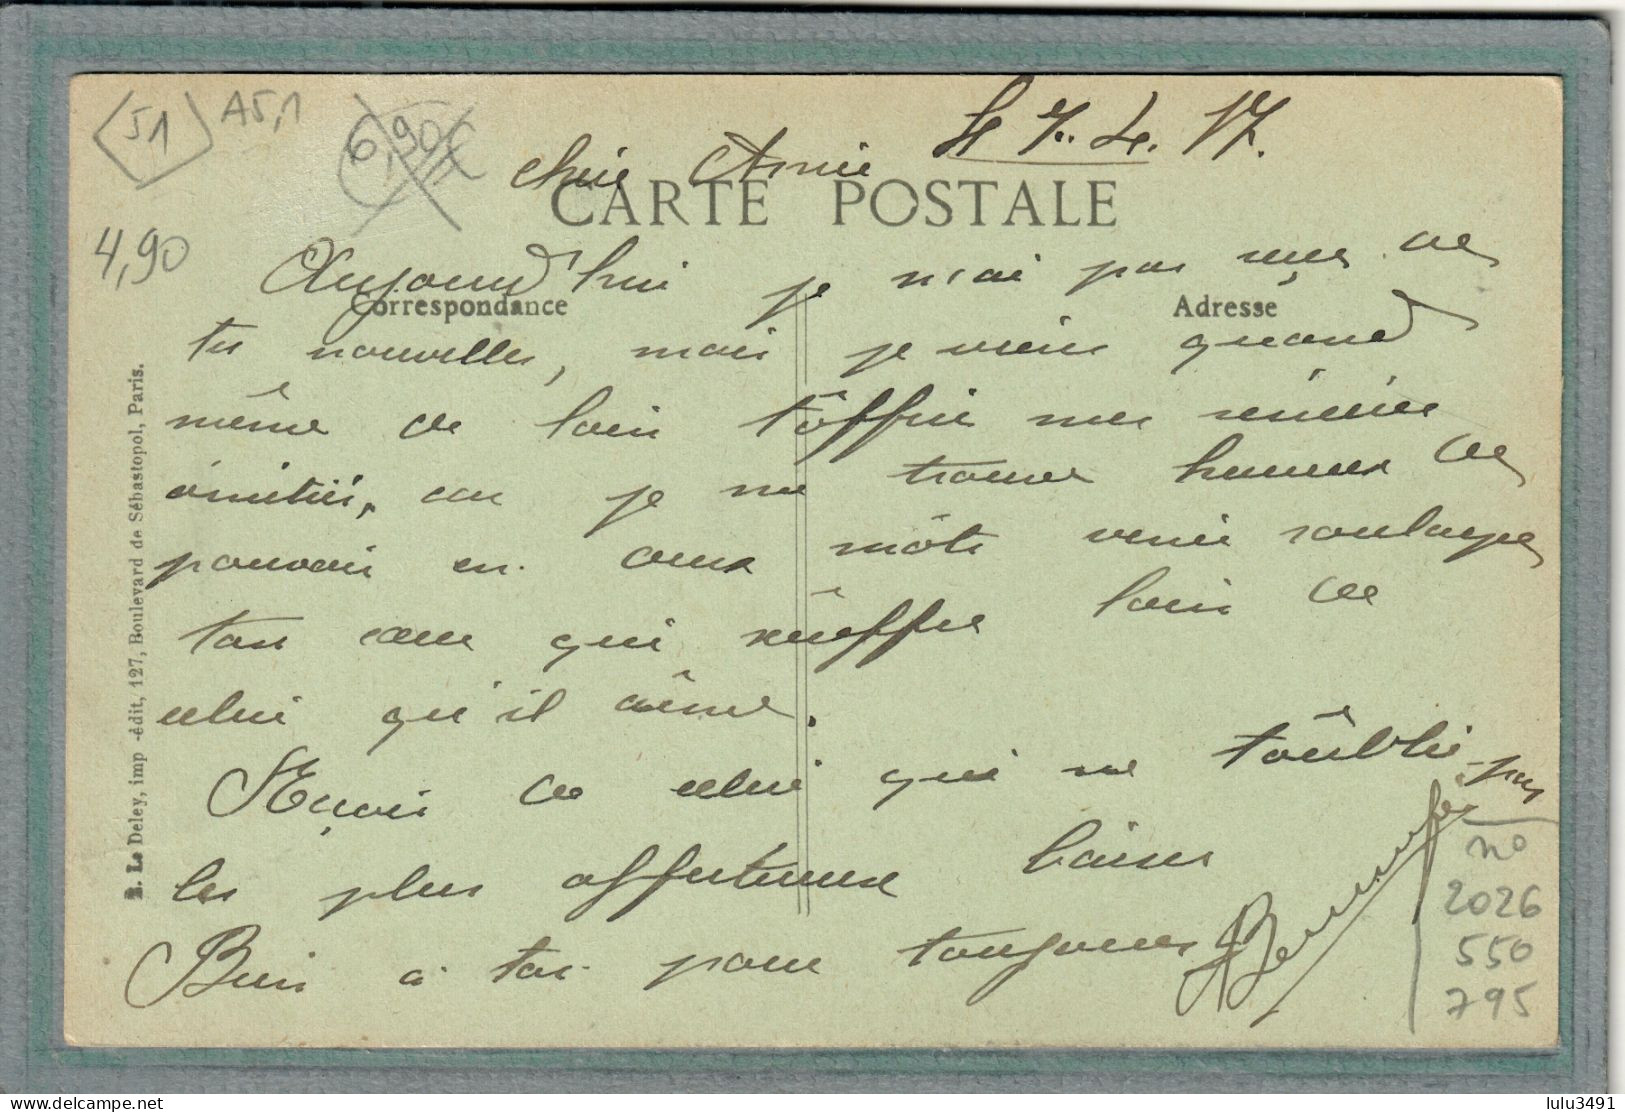 51
A5,1
6,90€
4,90
le 7. 4. 17.
chère Annie
CARTE POSTALE
Correspondance
Adresse
Aujourd'hui je n'ai pas reçu de
tes nouvelles, mais je viens quand
même de loin t'ôffrir mes sincères
amitiés, car je me trouve heureux de
pouvoir en deux môts venir soulager
ton cœur qui souffre loin de
celui qu'il aime.
Reçois de celui qui ne t'oûblie pas
les plus affectueux baisers
Bien à toi pour toujours
E. Le Deley, imp -édit, 127, Boulevard de Sébastopol, Paris.
no
2026
550
795
delcampe.net
lulu3491